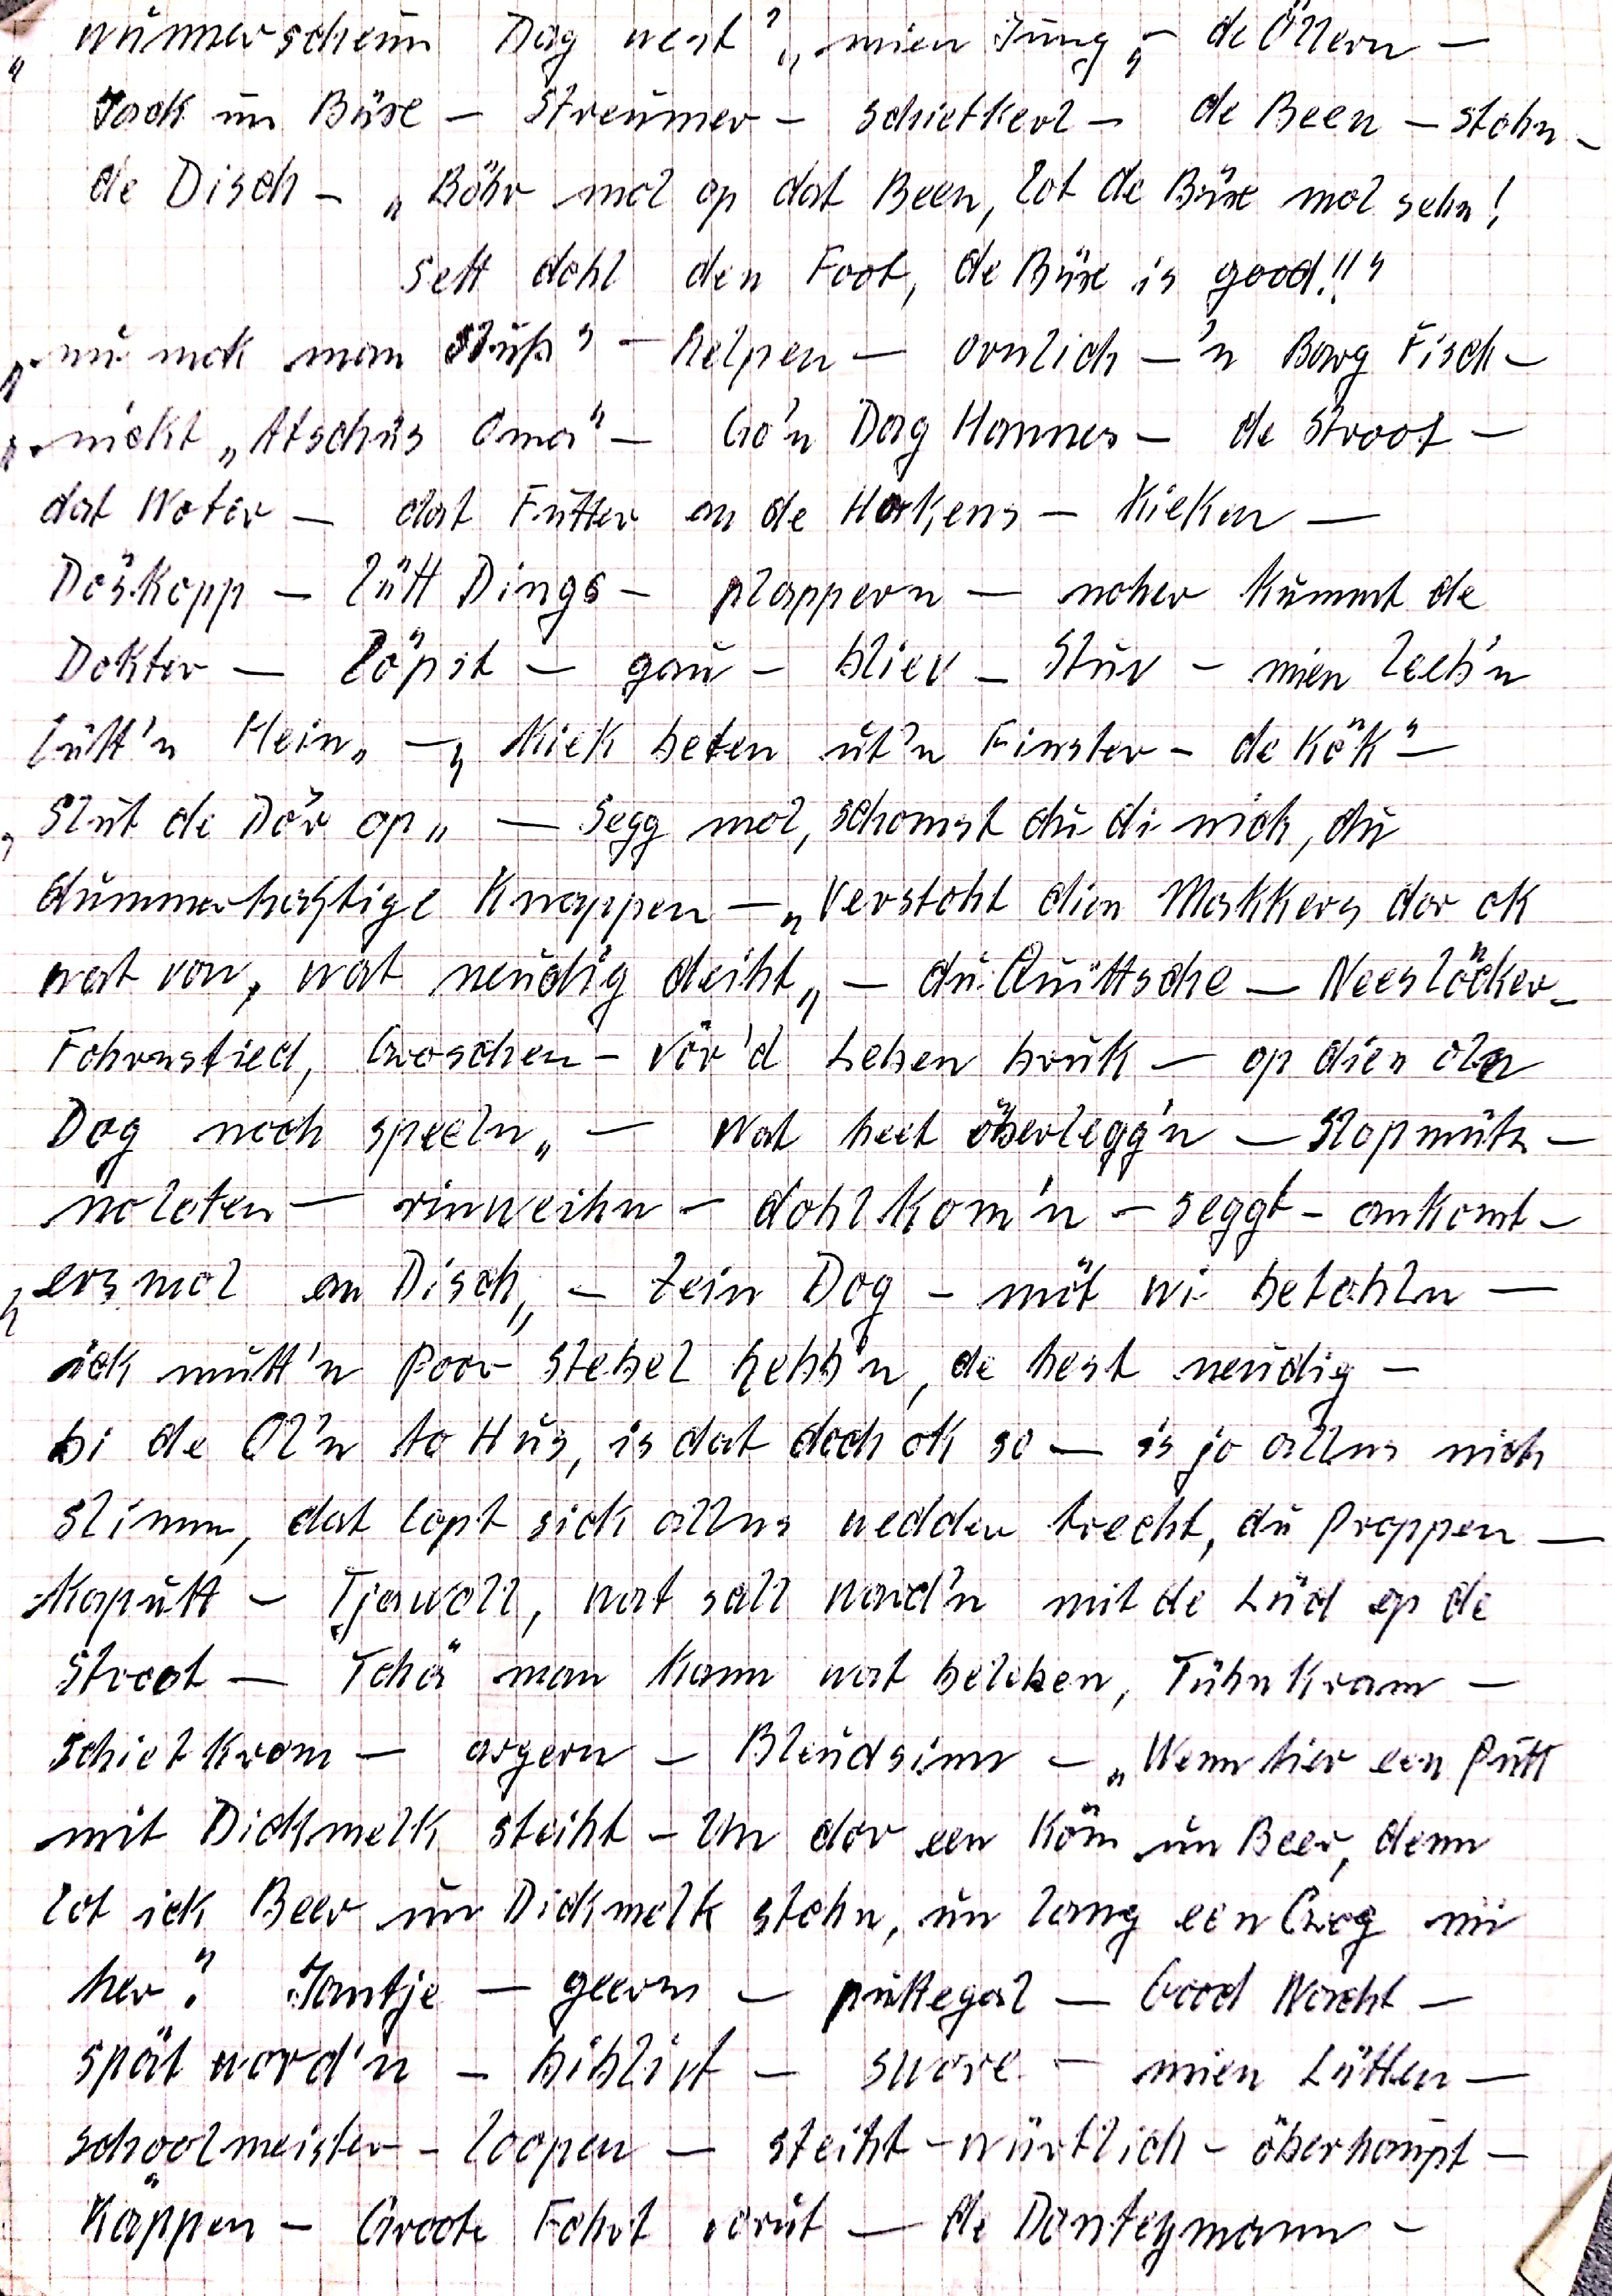 „wunnerscheun Dag west", „mien Jung" – de Öllern –
Jack un Büxe – Streumer – Schietkerl – de Been – stohn –
de Disch – „Böhr mol op dat Been, lot de Büxe mol sehn!
Sett dohl den Foot, de Büxe is good!!"
„nu mok man Sluß" – helpen – ornlich – 'n Barg Fisch –
„nickt „Atschüs Oma" – Go'n Dag Hannes – de Stroot –
dat Woter – dat Futter an de Hakens – Kieken –
Döskopp – lütt Dings – plappern – noher kummt de
Dokter – löpst – gau – bliev – Stuv – mien leeb'n
lütt'n Hein„ – „Kiek beten ut'n Finster – de Kök" –
„Slut de Dör op„ – Segg mol, schomst du di nich, du
dummerhaftige Knappen – „Verstoht dien Makkers dor ok
wat von, wat neudig deiht„ – du Quittsche – Neeslöcker –
Fohrnstied, Groschen – vör'd Leben bruk – op dien oln
Dog noch speeln„ – Wat heet överlegg'n – Slopmütz –
noloten – rinweihn – dohlkom'n – seggt – ankomt –
„ersmol an Disch„ – tein Dog – möt wi betohln –
ick mutt'n Poor Stebel hebb'n, de hest neudig –
bi de Ol'n to Hus, is dat doch ok so – is jo allns nich
slimm, dat lopt sick allns wedder trecht, du Proppen –
Kaputt – Tjawoll, wat sall ward'n mit de Lüd op de
Stroot – Tchä man kann wat beleben, Tühnkram –
Schietkrom – argern – Bleudsinn – „Wenn hier een Putt
mit Dickmelk steiht – Un dor een Köm un Beer, denn
lot ick Beer un Dickmelk stohn, un lang een Grog mi
her". Jantje – geern – puttegal – Good Nacht –
spät word'n – hiblist – swore – mien Lütten –
Schoolmeister – loopen – steiht – würklich – överhaupt –
Käppen – Groote Fohrt rut – de Danteymann –